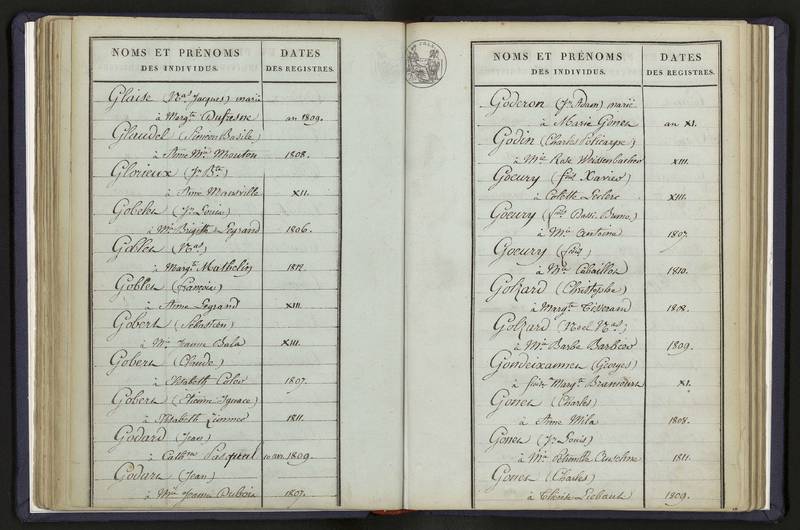 NOMS ET PRÉNOMS
DES INDIVIDUS.
DATES
DES REGISTRES.
Glaise (Nas Jacques) marié
à Margte Dufresne an 1809.
Glaudel (Siméon Basile)
à Anne Mie Mouton 1808.
Glorieux (Jn Bte)
à Anne Mansville XII.
Gobelet (Jn Louis)
à Mie Brigitte Legrand 1806.
Goblet (Nas)
à Margte Mathelin 1812.
Goblet (françois)
à Anne Legrand XIII.
Gobert (Sébastien)
à Mie Jeanne Bala XIII.
Gobert (Claude)
à Elisabeth 1807.
Gobert (Etienne Ignace)
à Elisabeth 1811.
Godard (Jean)
à Cathne Pasquril 1809.
Godart (Jean)
à Mie Jeanne Dubois 1807.
NOMS ET PRÉNOMS
DES INDIVIDUS.
DATES
DES REGISTRES.
Goderon (Jn Adrien) marié
à Marie Gones an XI.
Godin (Charles Policarpe)
à Mie Rose Weissenbacher XIII.
Goeury (fçois Xavier)
à Colette Leclerc XIII.
Goeury (fçois Bruno)
à Mie Antoine 1807.
Goeury (fçois)
à Mie Cabaillot 1810.
Golzard (Christophe)
à Margte Tisserand 1808.
Golzard (Noel Nas)
à Mie Barbe Barbier 1809.
Gondeixames (Georges)
à Margte Brancourt XI.
Gones (Charles)
à Anne Mila 1808.
Gones (Jn Louis)
à Mie 1811.
Gones (Charles)
à Liebaut 1809.